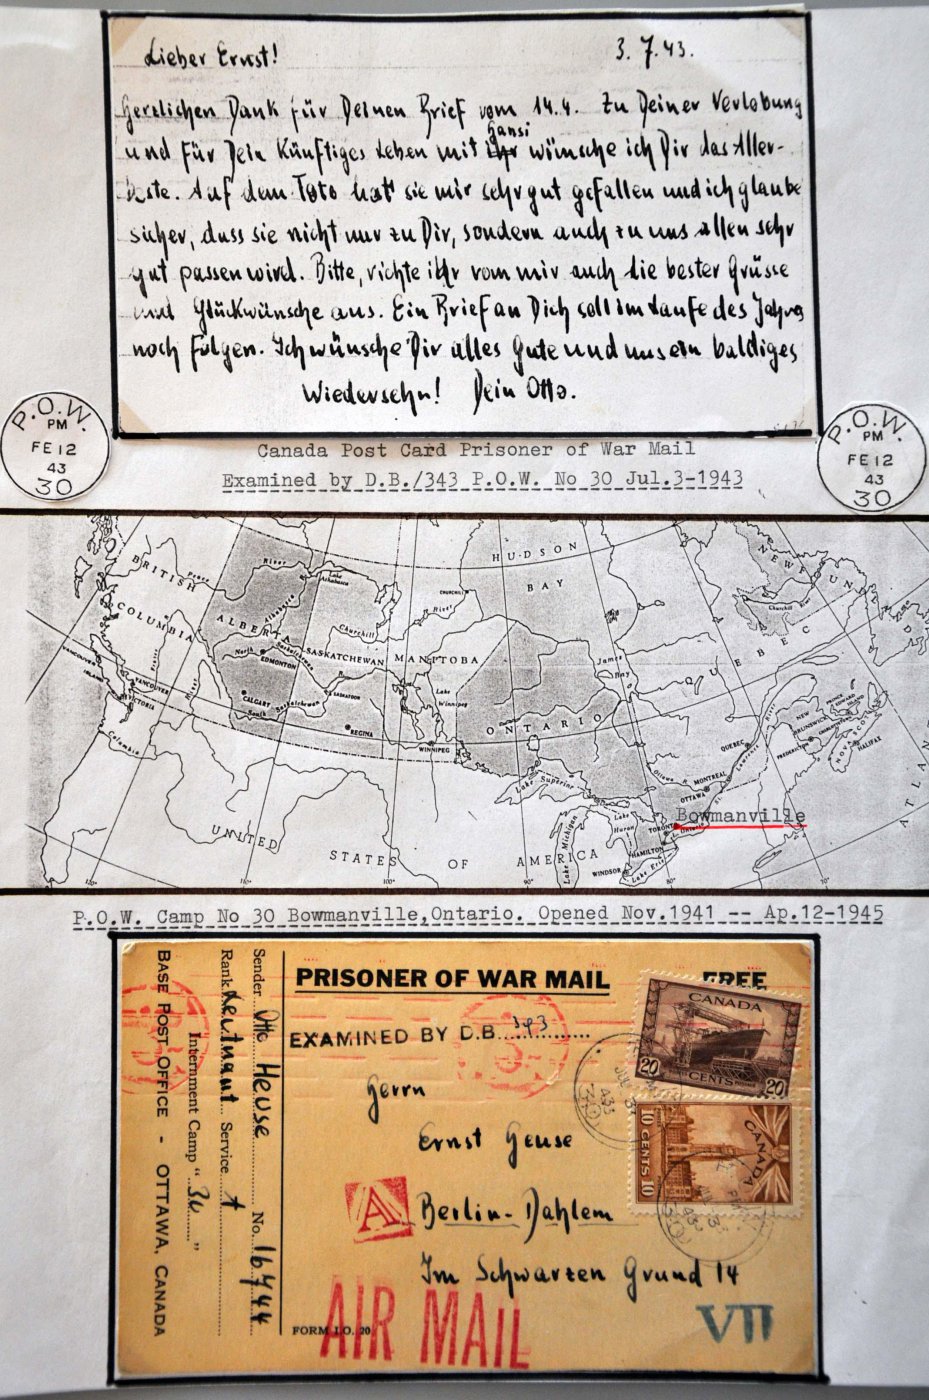 Lieber Ernst! 3.7.43.
Herzlichen Dank für Deinen Brief vom 14.4. Zu Deiner Verlobung
und für Dein künftiges Leben mit ihr Hansi wünsche ich Dir das Aller-
beste. Auf dem Foto hat sie mir sehr gut gefallen und ich glaube
sicher, dass sie nicht nur zu Dir, sondern auch zu uns allen sehr
gut passen wird. Bitte, richte ihr von mir auch die besten Grüsse
und Glückwünsche aus. Ein Brief an Dich soll im Laufe des Jahres
noch folgen. Ich wünsche Dir alles Gute und uns ein baldiges
Wiedersehn! Dein Otto.
P.O.W.
PM
FE 12
43
30
P.O.W.
PM
FE 12
43
30
Canada Post Card Prisoner of War Mail
Examined by D.B./343 P.O.W. No 30 Jul.3-1943
HUDSON
BAY
BRITISH
COLUMBIA
Peace
River
Lake
Athabasca
ALBERTA
Athabasca
North
Saskatchewan
EDMONTON
CALGARY
South Saskatchewan
SASKATCHEWAN
SASKATOON
REGINA
Churchill
River
CHURCHILL
MANITOBA
Lake
Winnipeg
WINNIPEG
ONTARIO
James
Bay
QUEBEC
NEWFOUN
D
Churchill
River
VANCOUVER
ISLAND
VANCOUVER
VICTORIA
Columbia
QUEBEC
MONTREAL
Ottawa
OTTAWA
St. Lawrence
River
NEW
BRUNSWICK
FREDERICTON
PRINCE
EDWARD
ISLAND
NOVA SCOTIA
HALIFAX
Lake Superior
Lake Michigan
Lake
Huron
TORONTO
Ontario
HAMILTON
WINDSOR
Lake Erie
Bowmanville
UNITED
STATES OF AMERICA
ATLAN
110°
100°
90°
80°
70°
P.O.W. Camp No 30 Bowmanville,Ontario. Opened Nov.1941 -- Ap.12-1945
PRISONER OF WAR MAIL FREE
EXAMINED BY D.B. 343
Herrn
Ernst Geuse
Berlin-Dahlem
Im Schwarzen Grund 14
A
AIR MAIL
VII
FORM I.O. 20
Sender Otto Heuse No. 16744
Rank Leutnant Service A
Internment Camp "30"
BASE POST OFFICE - OTTAWA, CANADA
CANADA
20 CENTS 20
CANADA
10 CENTS 10
JUL 3
43
30
PM
JUL 3
43
30